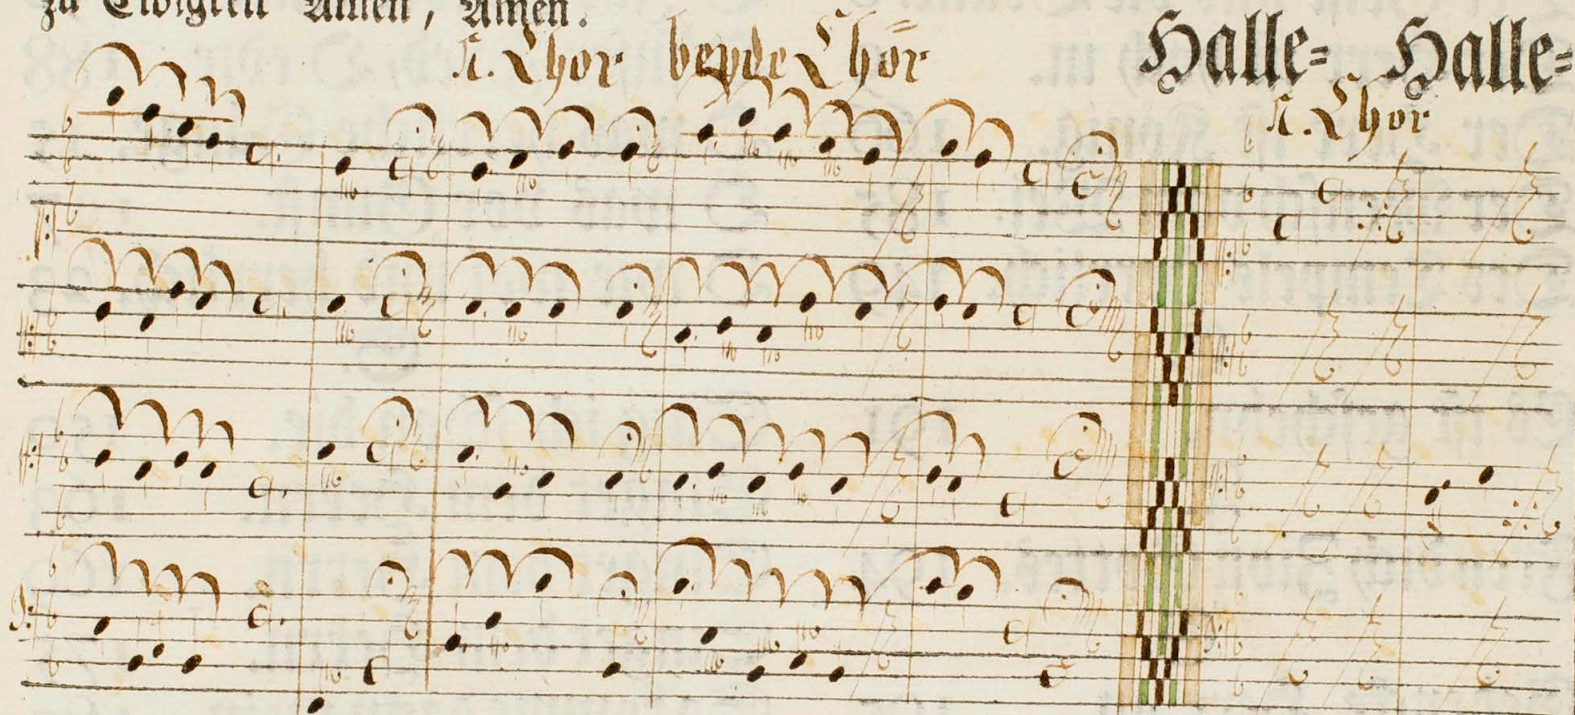 zu Ewigkeit Amen, Amen.
K. Chor beyde Chör Halle= Halle=
K. Chor